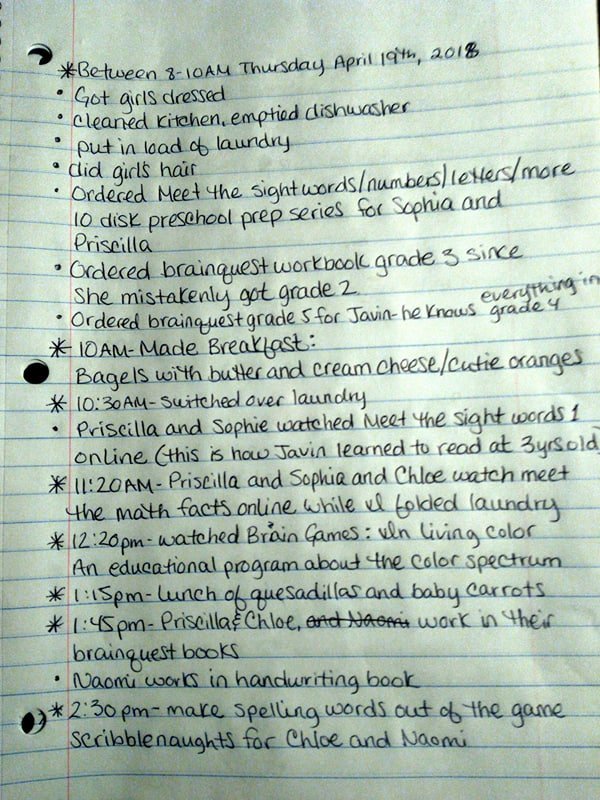 *Between 8-10AM Thursday April 19th, 2018
• Got girls dressed
• Cleaned kitchen, emptied dishwasher
• put in load of laundry
• did girls hair
• Ordered Meet the sight words/numbers/letters/more
10 disk preschool prep series for Sophia and
Priscilla
• Ordered brainquest workbook grade 3 since
She mistakenly got grade 2
• Ordered brainquest grade 5 for Javin-he knows everything in grade 4
* 10AM-Made Breakfast:
Bagels with butter and cream cheese/cutie oranges
* 10:30AM-Switched over laundry
• Priscilla and Sophie watched Meet the sight words 1
online (this is how Javin learned to read at 3yrs old)
* 11:20AM-Priscilla and Sophia and Chloe watch meet
the math facts online while I folded laundry
* 12:20pm-watched Brain Games: In living color
An educational program about the color spectrum
* 1:15pm-Lunch of quesadillas and baby carrots
* 1:45pm-Priscilla & Chloe, and Naomi work in their
brainquest books
• Naomi works in handwriting book
* 2:30pm-make spelling words out of the game
Scribblenaughts for Chloe and Naomi